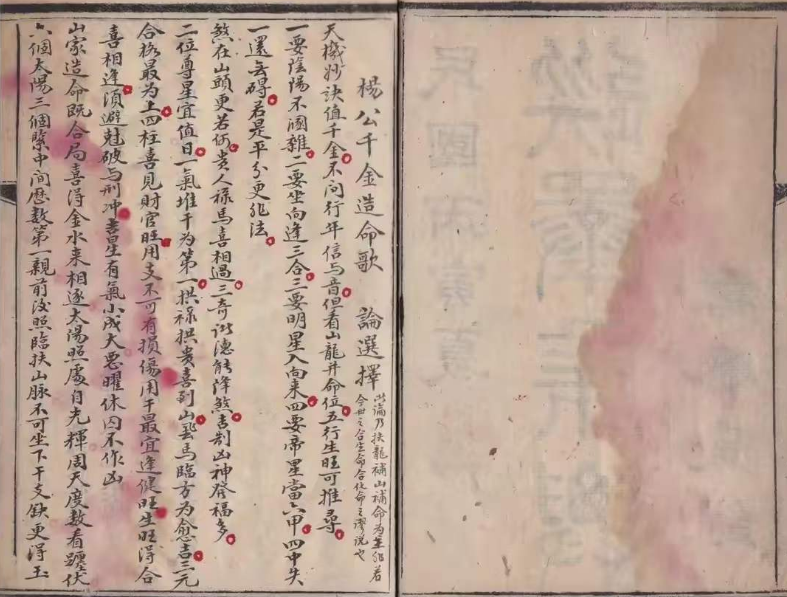 楊公千金造命歌　論選擇
此論乃扶龍補山補命為主非若
今世之合生命合化命之謬説也
天機妙訣值千金不問行年信与音但看山龍并命位五行生旺可推尋
一要陰陽不溷雜二要坐向逢三合三要明星入向来四要帝星當六甲四中失
一還無碍若是平分更非法
煞在山頭更若何貴人禄馬喜相遇三奇諸德能降煞吉制凶神發福多
二位尊星宜值日一氣堆干為第一拱禄拱貴喜到山飛馬臨方為愈吉三元
合格最為上四柱喜見財官旺用支不可有損傷用干最宜逢健旺生旺得合
喜相逢須避尅破与刑冲吉星有氣小成大惡曜休囚不作凶
山家造命既合局喜得金水来相逐太陽照處自光輝周天度數看躔伏
六個太陽三個緊中間歷數第一親前後照臨扶山脉不可坐下干支缺更得玉